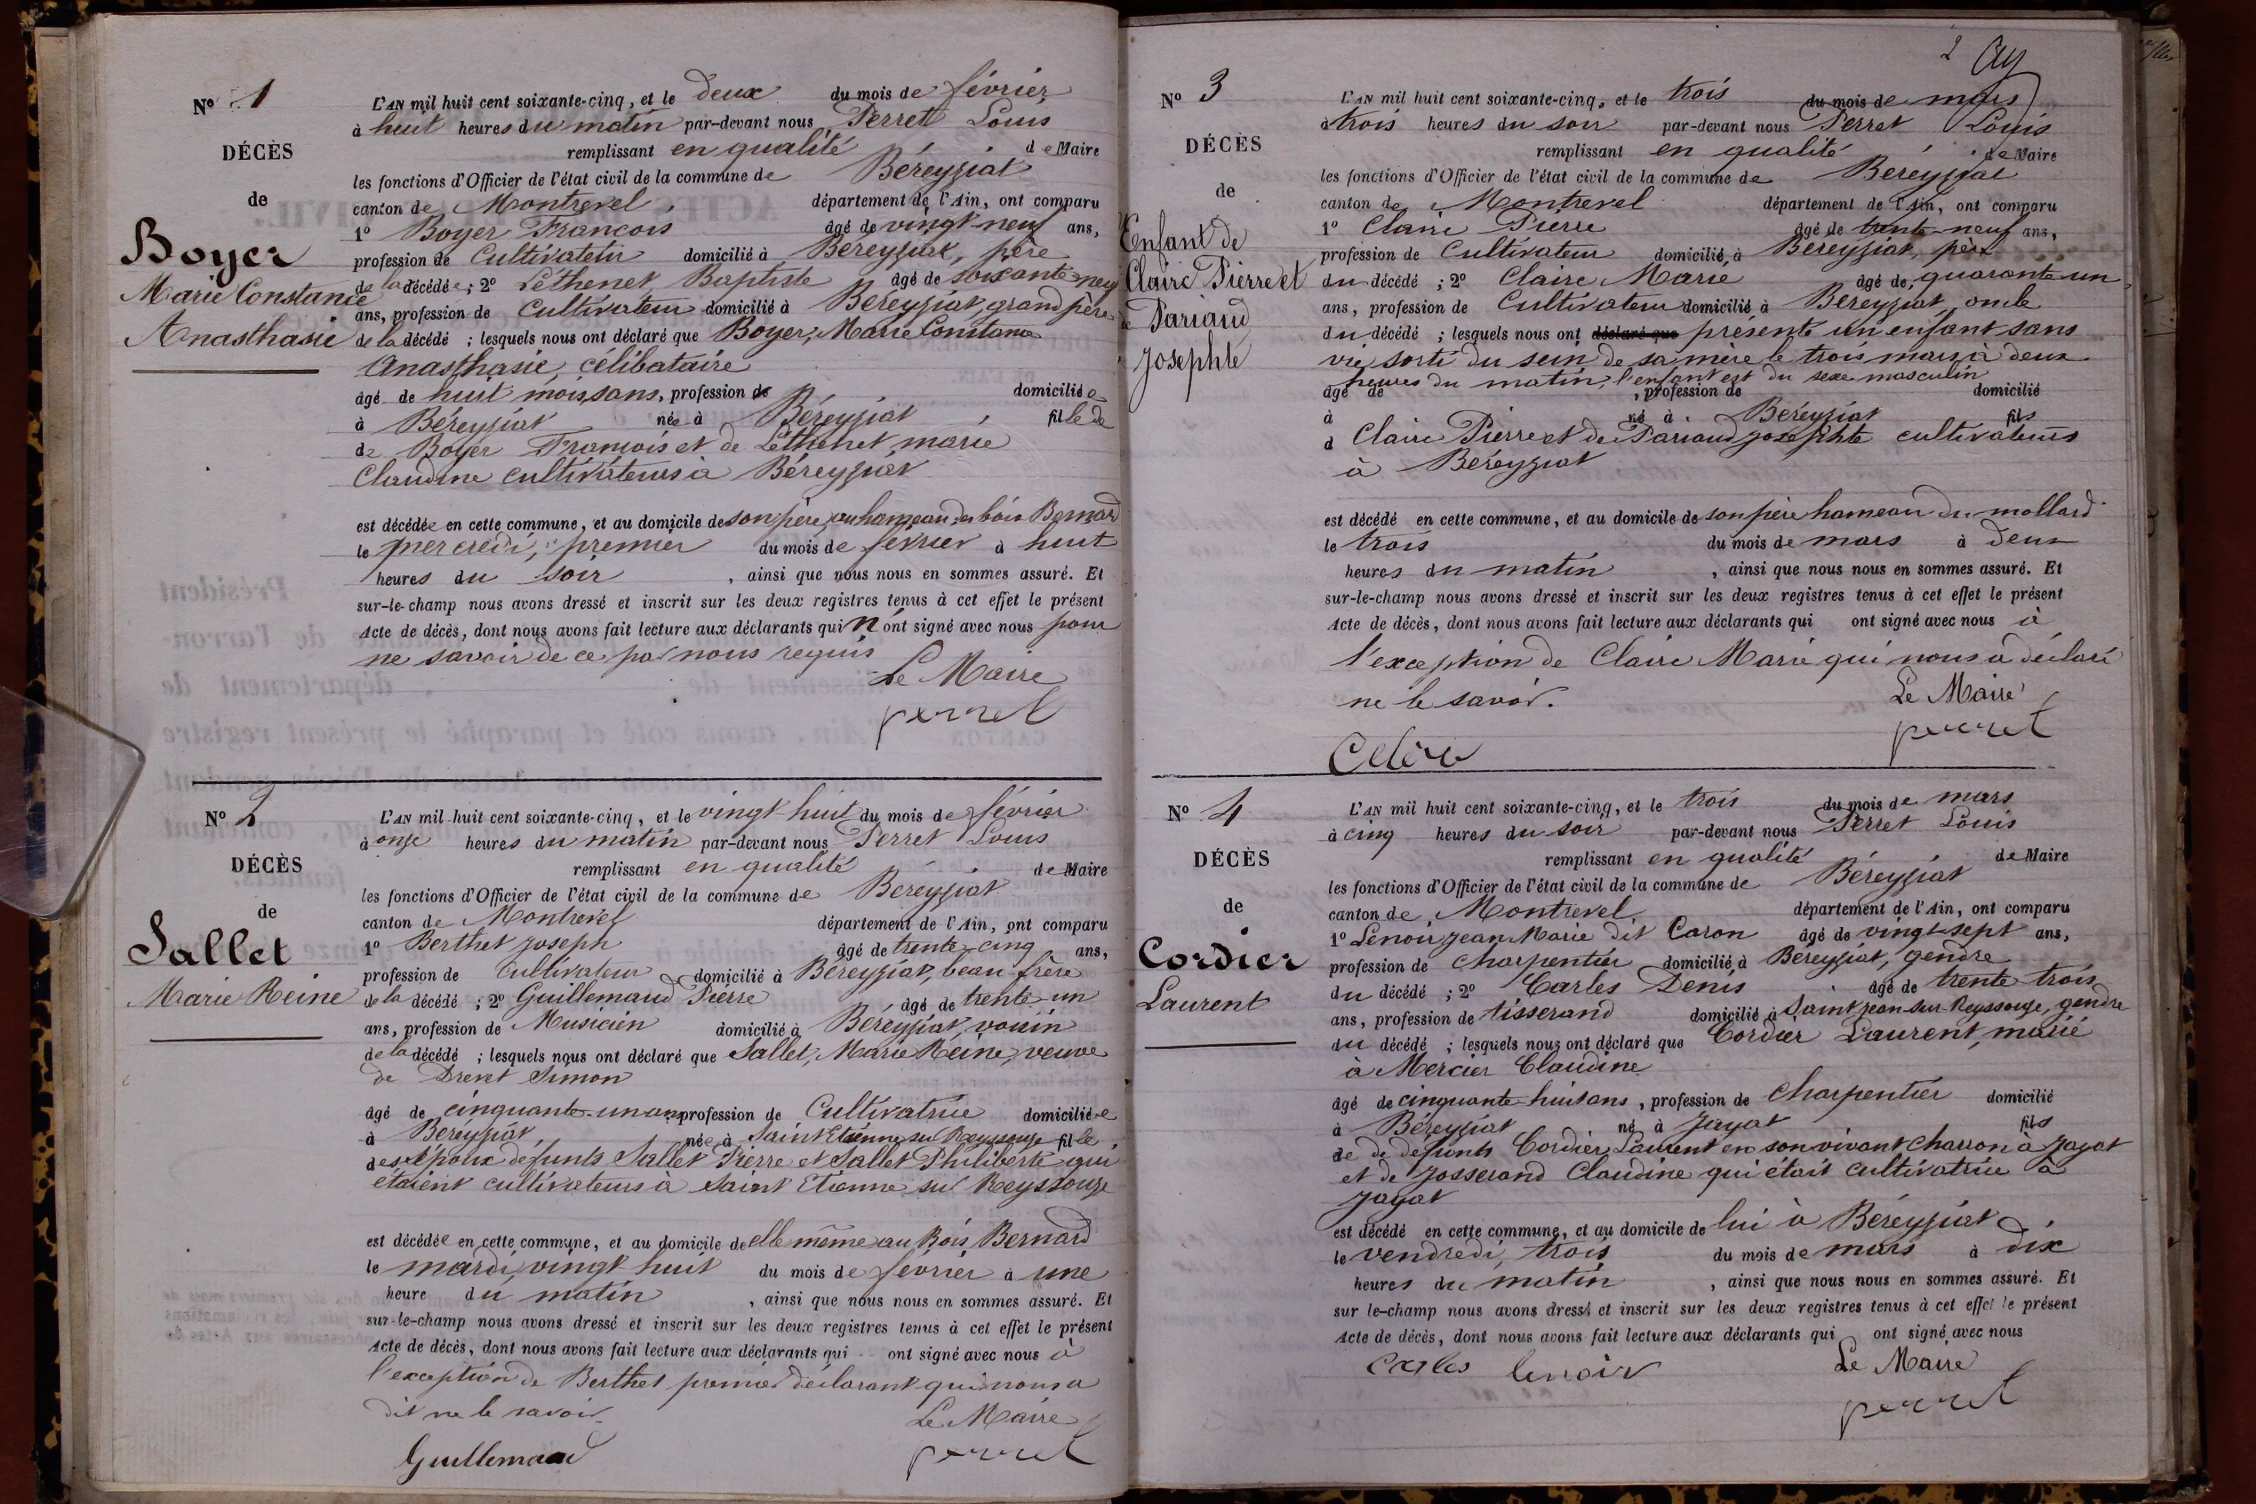 N° 1
DÉCÈS
de
Boyer
Marie Constance
Anasthasie
L'AN mil huit cent soixante-cinq, et le deux du mois de février
à huit heures du matin par-devant nous Perret Louis
remplissant en qualité de Maire
les fonctions d'Officier de l'état civil de la commune de Béreyziat
canton de Montrevel, département de l'Ain, ont comparu
1° Boyer François âgé de vingt-neuf ans,
profession de Cultivateur domicilié à Béreyziat, père
de la décédée; 2° Léthenet Baptiste âgé de soixante-neuf
ans, profession de Cultivateur domicilié à Béreyziat, grand père
de la décédé ; lesquels nous ont déclaré que Boyer, Marie Constance
Anasthasie, célibataire
âgé de huit mois, ans, profession de domiciliée
à Béreyziat née à Béreyziat fille de
de Boyer François et de Léthenet, marie
Claudine cultivateurs à Béreyziat
est décédée en cette commune, et au domicile de son père, au hameau du bois Bernard
le mercredi, premier du mois de février à huit
heures du soir, ainsi que nous nous en sommes assuré. Et
sur-le-champ nous avons dressé et inscrit sur les deux registres tenus à cet effet le présent
Acte de décès, dont nous avons fait lecture aux déclarants qui n'ont signé avec nous pour
ne savoir de ce par nous requis
Le Maire
perret
N° 2
DÉCÈS
de
Sallet
Marie Reine
L'AN mil huit cent soixante-cinq, et le vingt huit du mois de février
à onze heures du matin par-devant nous Perret Louis
remplissant en qualité de Maire
les fonctions d'Officier de l'état civil de la commune de Béreyziat
canton de Montrevel département de l'Ain, ont comparu
1° Berthet joseph âgé de trente-cinq ans,
profession de Cultivateur domicilié à Béreyziat, beau-frère
de la décédé ; 2° Guillemaud Pierre âgé de trente-un
ans, profession de Musicien domicilié à Béreyziat, voisin
de la décédé ; lesquels nous ont déclaré que Sallet, Marie Reine, veuve
de Drevet Simon
âgé de cinquante-un ans profession de Cultivatrice domiciliée
à Béreyziat née à Saint Etienne sur Reyssouze fille
des époux défunts Sallet Pierre et Sallet Philiberte qui
étaient cultivateurs à Saint Etienne sur Reyssouze
est décédée en cette commune, et au domicile de elle même au Bois Bernard
le mardi, vingt huit du mois de février à une
heure du matin, ainsi que nous nous en sommes assuré. Et
sur-le-champ nous avons dressé et inscrit sur les deux registres tenus à cet effet le présent
Acte de décès, dont nous avons fait lecture aux déclarants qui ont signé avec nous à
l'exception de Berthet premier déclarant qui nous a
dit ne le savoir.
Le Maire
Guillemaud perret
2
N° 3
DÉCÈS
de
Enfant de
Claire Pierre et
de Pariaud
Josephte
L'AN mil huit cent soixante-cinq, et le trois du mois de mars
à trois heures du soir par-devant nous Perret Louis
remplissant en qualité de Maire
les fonctions d'Officier de l'état civil de la commune de Béreyziat
canton de Montrevel département de l'Ain, ont comparu
1° Claire Pierre âgé de trente-neuf ans,
profession de Cultivateur domicilié à Béreyziat, père
du décédé ; 2° Claire Marie âgé de quarante-un
ans, profession de Cultivateur domicilié à Béreyziat, oncle
du décédé ; lesquels nous ont déclaré que présenté un enfant sans
vie sorti du sein de sa mère le trois mars à deux
heures du matin, l'enfant est du sexe masculin
âgé de , profession de domicilié
à né à Béreyziat fils
d Claire Pierre et de Pariaud josephte cultivateurs
à Béreyziat
est décédé en cette commune, et au domicile de son père hameau du mollard
le trois du mois de mars à deux
heures du matin, ainsi que nous nous en sommes assuré. Et
sur-le-champ nous avons dressé et inscrit sur les deux registres tenus à cet effet le présent
Acte de décès, dont nous avons fait lecture aux déclarants qui ont signé avec nous à
l'exception de Claire Marie qui nous a déclaré
ne le savoir.
Le Maire
perret
N° 4
DÉCÈS
de
Cordier
Laurent
L'AN mil huit cent soixante-cinq, et le trois du mois de mars
à cinq heures du soir par-devant nous Perret Louis
remplissant en qualité de Maire
les fonctions d'Officier de l'état civil de la commune de Béreyziat
canton de Montrevel département de l'Ain, ont comparu
1° Lenoir jean Marie dit Caron âgé de vingt-sept ans,
profession de charpentier domicilié à Béreyziat, gendre
du décédé ; 2° Carles Denis âgé de trente trois
ans, profession de tisserand domicilié à Saint jean sur Reyssouze, gendre
du décédé ; lesquels nous ont déclaré que Cordier Laurent, marié
à Mercier Claudine
âgé de cinquante-huit ans, profession de Charpentier domicilié
à Béreyziat né à Jayat fils
de de défunts Cordier Laurent en son vivant charron à Jayat
et de Josserand Claudine qui était cultivatrice à
Jayat
est décédé en cette commune, et au domicile de lui à Béreyziat
le vendredi, trois du mois de mars à dix
heures du matin, ainsi que nous nous en sommes assuré. Et
sur le-champ nous avons dressé et inscrit sur les deux registres tenus à cet effet le présent
Acte de décès, dont nous avons fait lecture aux déclarants qui ont signé avec nous
Carles lenoir Le Maire
perret